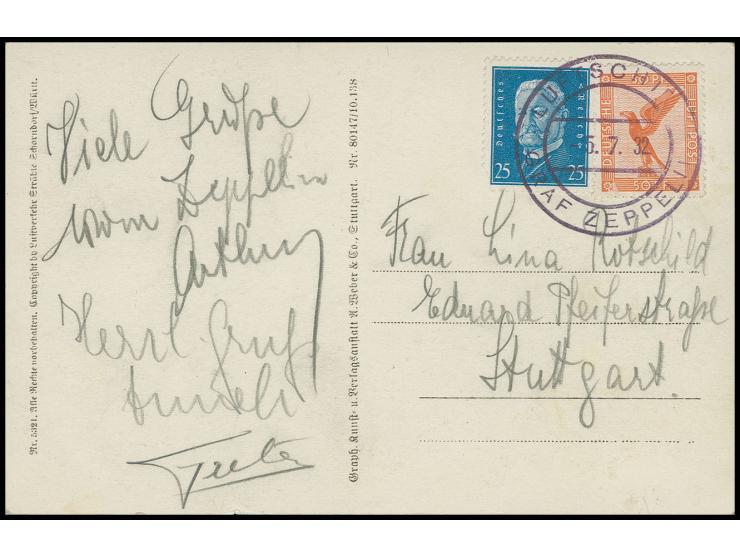 Nr. 5321. Alle Rechte vorbehalten. Copyright by Luftverkehr Strähle Schorndorf/Württ.
Viele Grüße
vom Zeppelin
Arthur
Herzl. Gruß
Greta
Graph. Kunst- u. Verlagsanstalt A. Weber & Co., Stuttgart. Nr. 80147/10.138
Deutsches Reich
25 25
DEUTSCHE LUFTPOST
50 PF
50
LUFTSCHIFF
5.7.32
GRAF ZEPPELIN
Frau Lina Rotschild
Eduard Pfeiferstraße
Stuttgart.